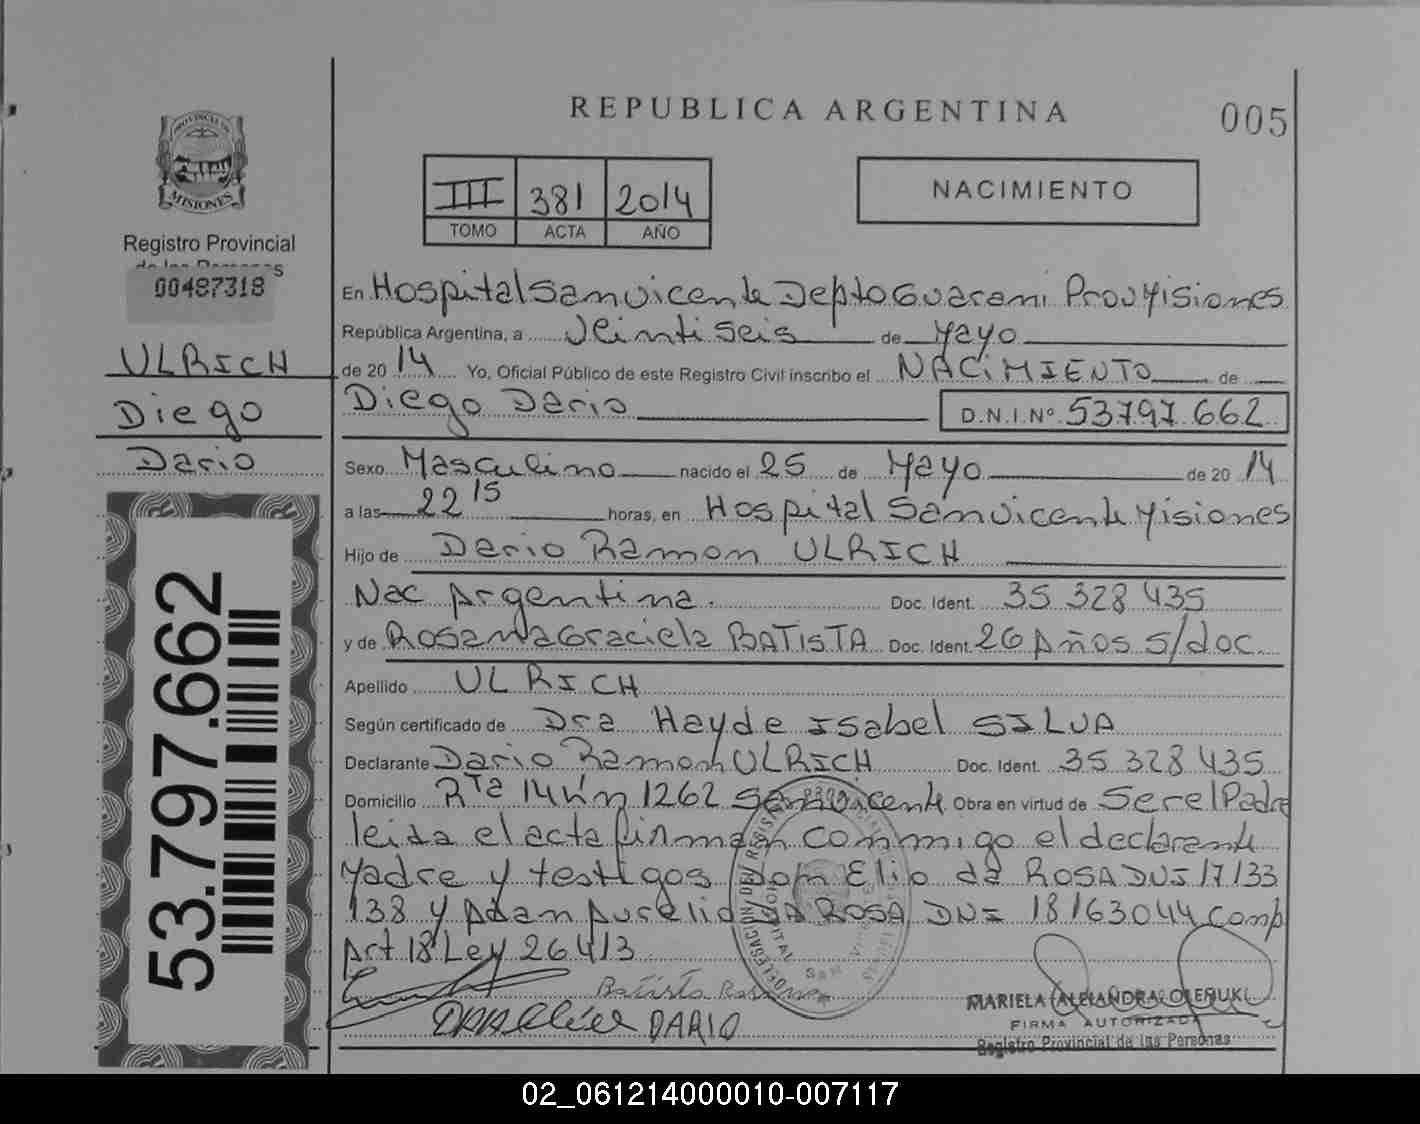 REPUBLICA ARGENTINA
005
PROVINCIA DE
MISIONES
Registro Provincial
de las Personas
00487318
III 381 2014
TOMO ACTA AÑO
NACIMIENTO
ULRICH
Diego
Dario
53.797.662
En Hospital San vicente Depto Guarani Prov Misiones
República Argentina, a Veintiseis de Mayo
de 20 14 Yo, Oficial Público de este Registro Civil inscribo el NACIMIENTO de
Diego Dario D.N.I.Nº 53797.662
Sexo Masculino nacido el 25 de Mayo de 20 14
a las 22 15 horas, en Hospital San vicente Misiones
Hijo de Dario Ramon ULRICH
Nac Argentina. Doc. Ident. 35 328 435
y de Rosana Graciela BATISTA Doc. Ident. 26 Años s/doc.
Apellido ULRICH
Según certificado de Dra Hayde Isabel SILVA
Declarante Dario Ramon ULRICH Doc. Ident. 35 328 435
Domicilio Rta 14 km 1262 San vicente Obra en virtud de Ser el Padre
leida el acta firman conmigo el declarante
Madre y testigos Elio da ROSA DNI 17133
138 y Adan Aurelio da ROSA DNI 18163044 comp
Art 18 Ley 26413
Batista
DARIO
MARIELA ALEJANDRA OLEÑUKI
FIRMA AUTORIZADA
Registro Provincial de las Personas
02_061214000010-007117